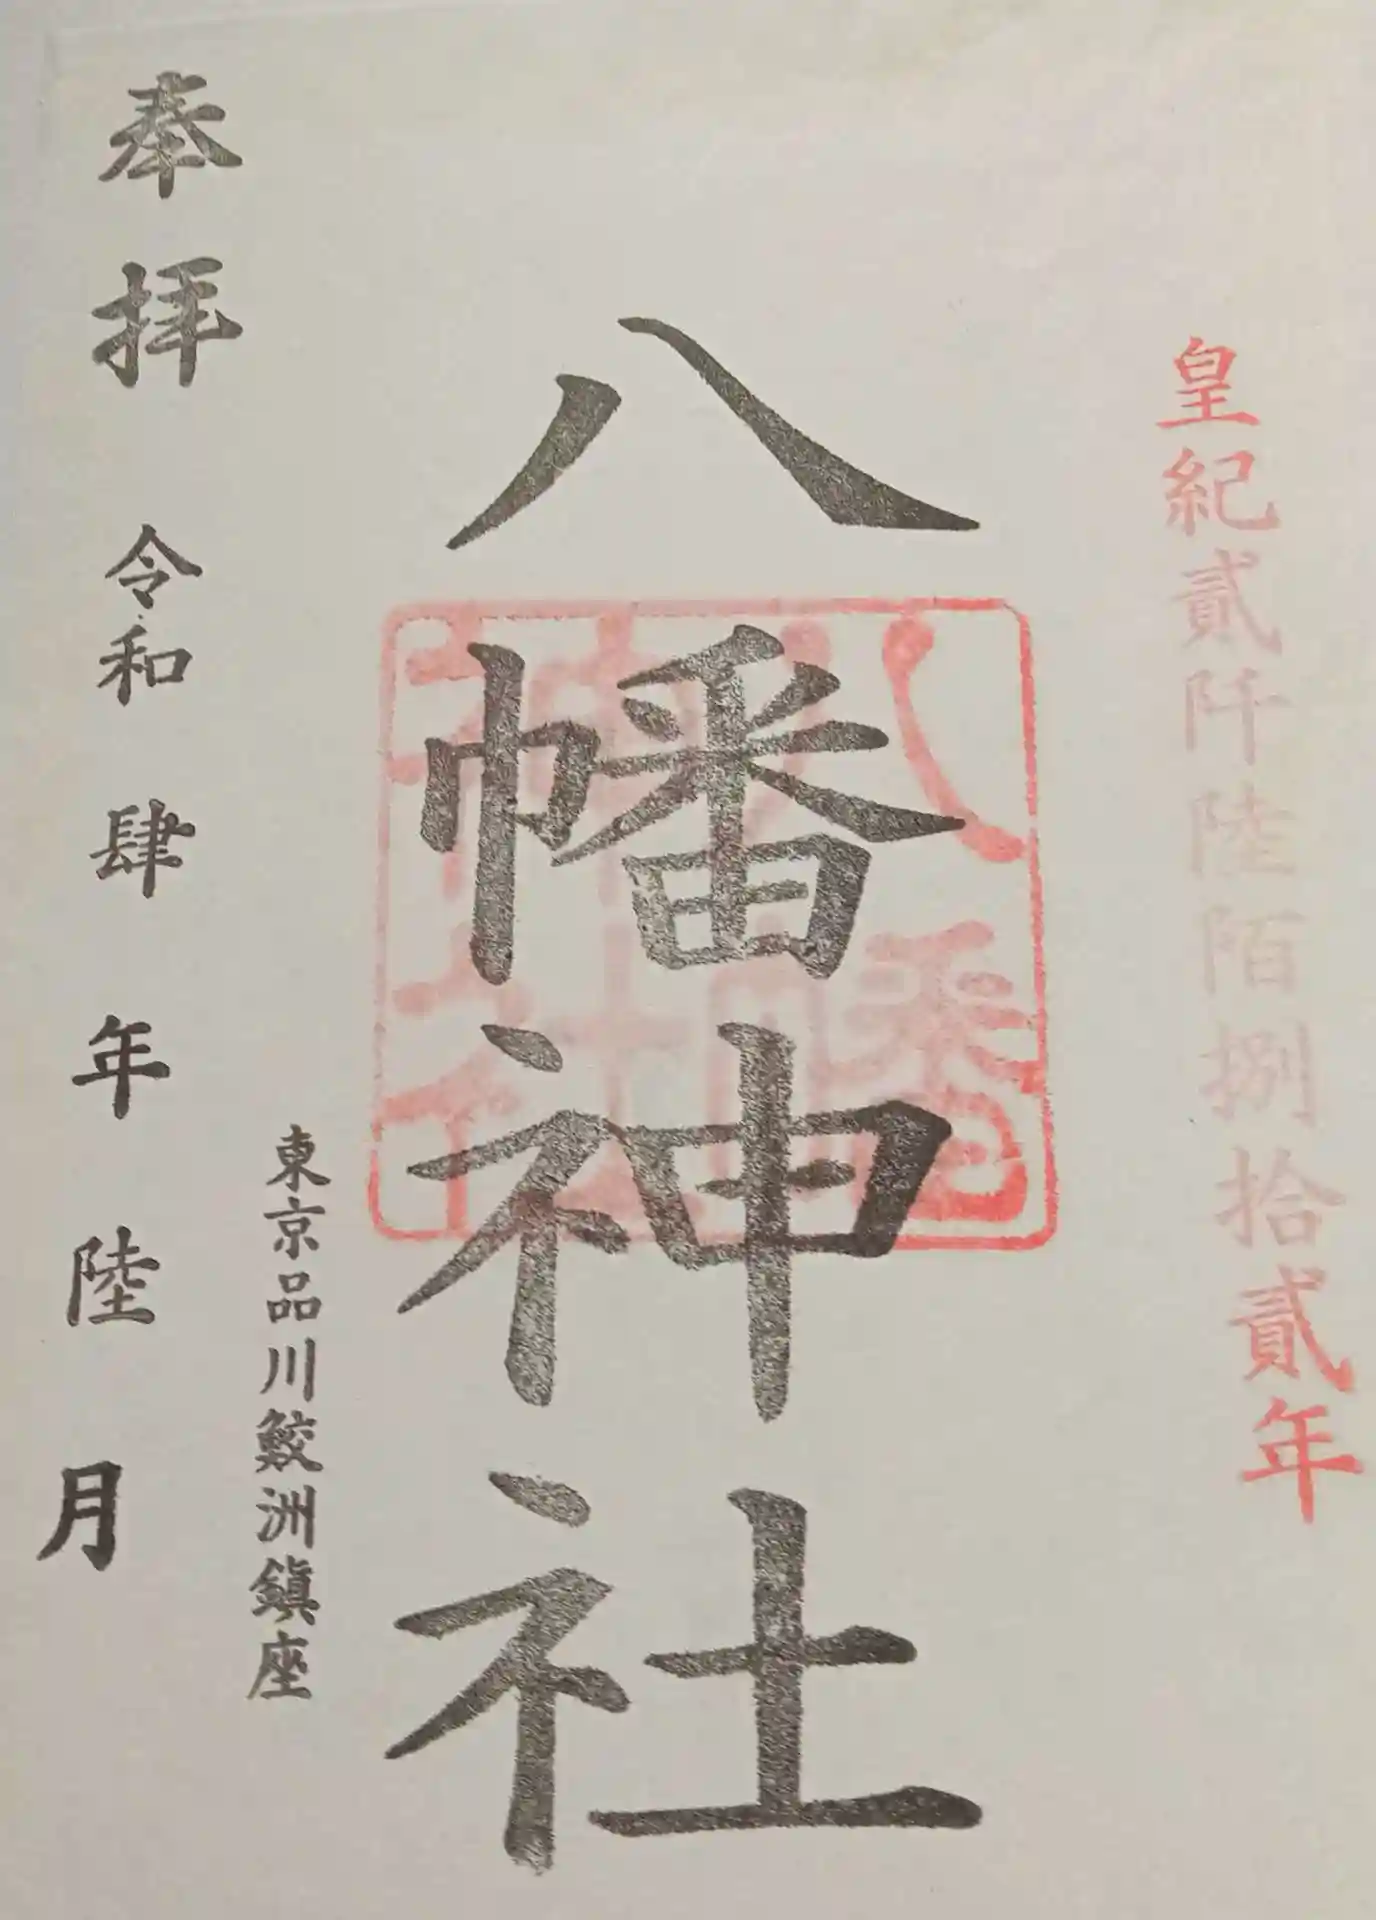 皇紀貳阡陸陌捌拾貳年
八幡神社
八幡神社
東京品川鮫洲鎮座
奉拝 令和肆年陸月